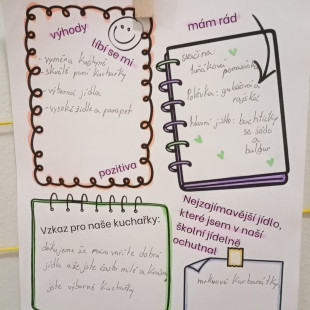 výhody
líbí se mi
- výměna kuchyně
- skvělé paní kuchařky
- výborná jídla
- vysoké židle a parapet
pozitiva
mám rád
svačina:
tuňáková pomazánka
Polévka: gulášová a
rajská
hlavní jídlo: buchtičky
se šodó
a
bulgur
Vzkaz pro naše kuchařky:
děkujeme že nám vaříte dobrá
jídla
jste výborné kuchařky
Nejzajímavější jídlo,
které jsem v naší
školní jídelně
ochutnal
mrkvové karbanátky